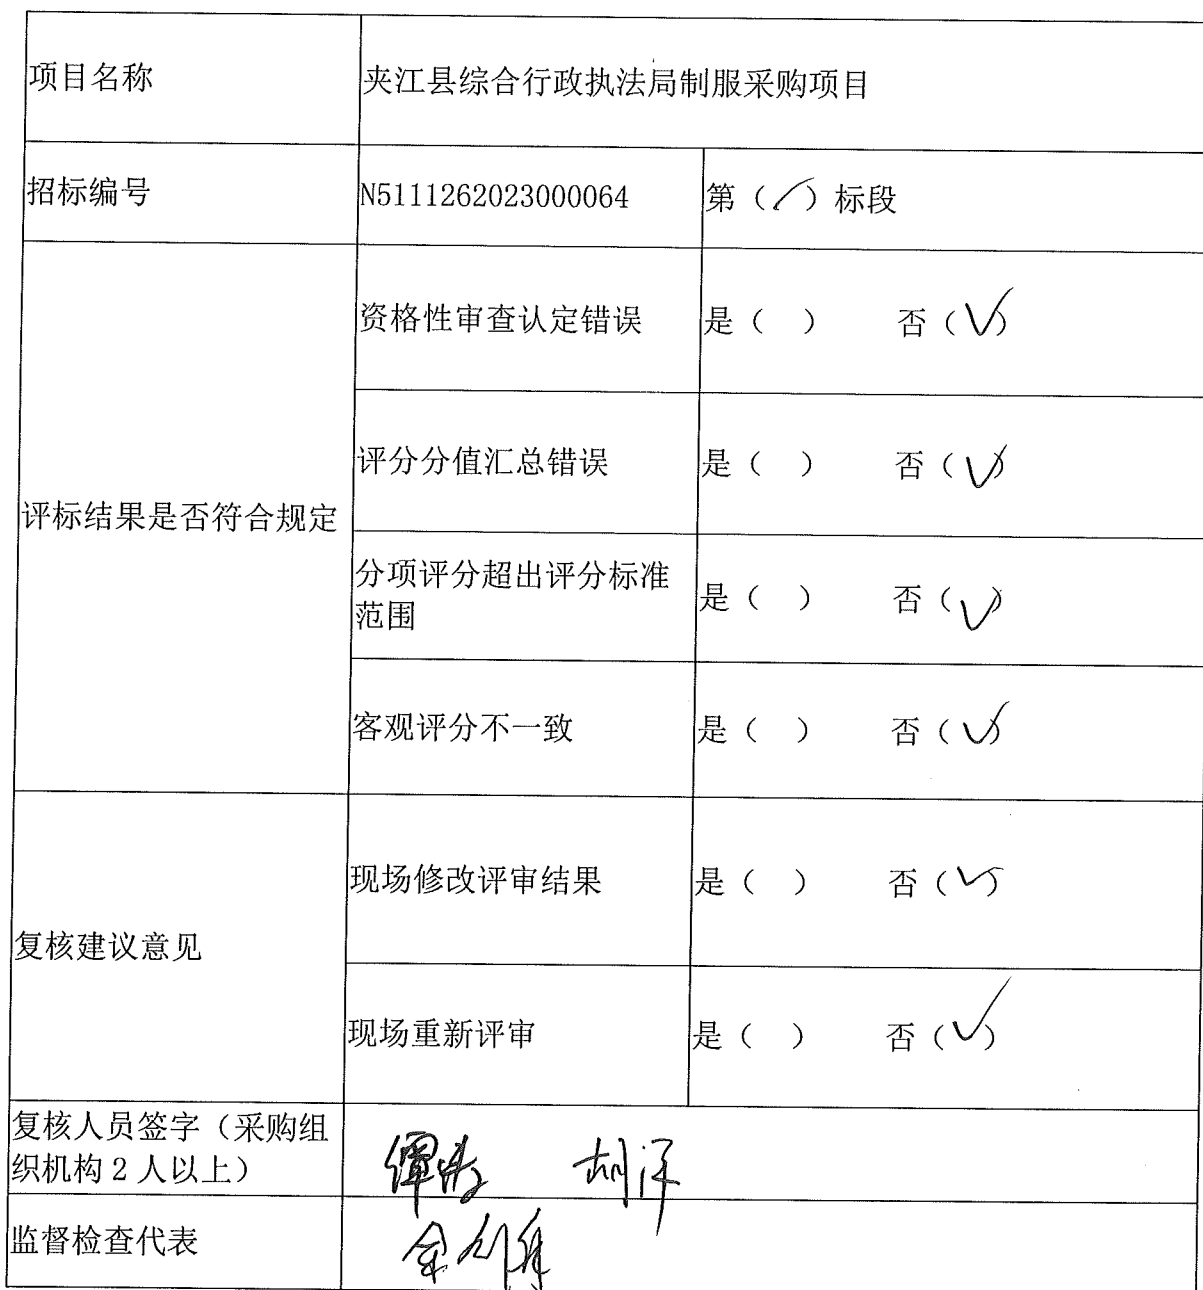 项目名称
夹江县综合行政执法局制服采购项目
招标编号
N5111262023000064
第（✓）标段
评标结果是否符合规定
资格性审查认定错误
是（ ） 否（✓）
评分分值汇总错误
是（ ） 否（✓）
分项评分超出评分标准
范围
是（ ） 否（✓）
客观评分不一致
是（ ） 否（✓）
复核建议意见
现场修改评审结果
是（ ） 否（✓）
现场重新评审
是（ ） 否（✓）
复核人员签字（采购组
织机构2人以上）
监督检查代表